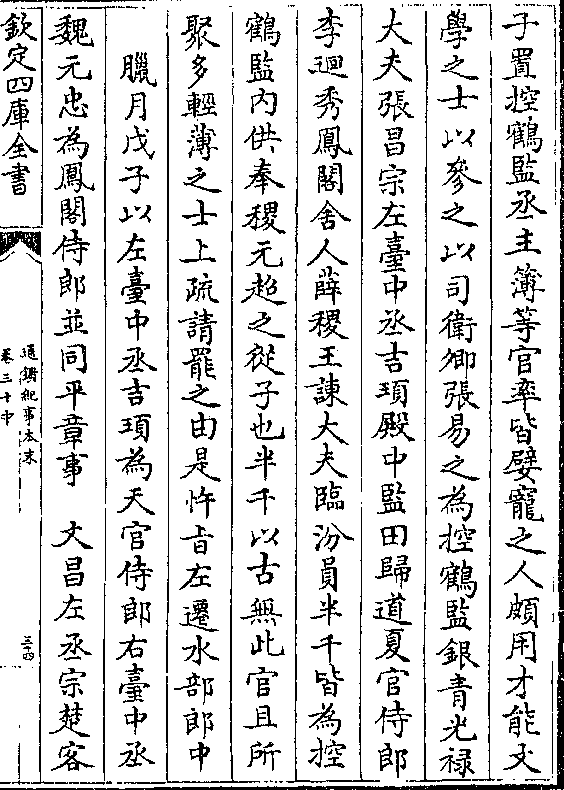 子置控鶴監丞主簿等官率皆嬖寵之人頗用才能文
學之士以參之以司衛卿張易之為控鶴監銀青光禄
大夫張昌宗左臺中丞吉頊殿中監田歸道夏官侍郎
李迥秀鳳閣舍人薛稷王諫大夫臨汾員半千皆為控
鶴監内供奉稷元超之從子也半千以古無此官且所
聚多輕薄之士上疏請罷之由是忤㫖左遷水部郎中
臘月戊子以左臺中丞吉頊為天官侍郎右臺中丞
魏元忠為鳳閣侍郎並同平章事　文昌左丞宗楚客
欽定四庫全書
通鑑紀事本末
卷三十中
三四